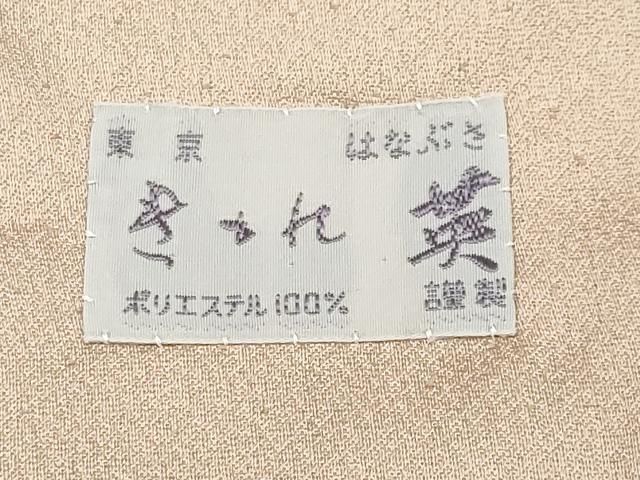 東京 はなぶさ
きゃれ 英
ポリエステル100% 謹製